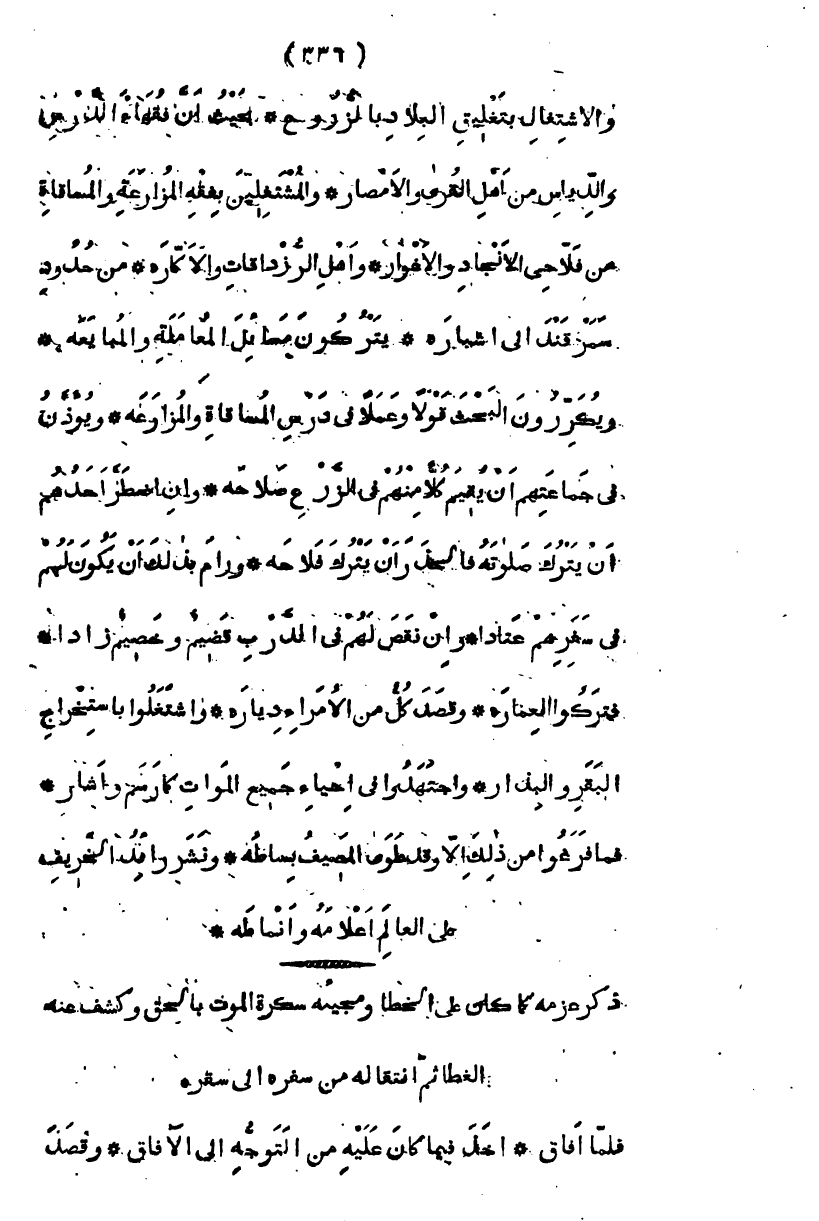 (٣٣٦)
والاشتِغالِ بتَغْلِيقِ البِلادِ بالمزروح * بحَيْثُ اَنَّ فُقَهاءَ الدَّرْسِ
والدِّياسِ مِن اَهْلِ القُرى والاَمْصار * والمُشْتَغِلِيْنَ بِفِقْهِ المُزارَعَةِ والمُساقاةِ
من فَلّاحِى الاَنْجادِ والاَغْوار * وَاَهْلِ الرُّزْداقاتِ والاَكّارَه * من حُدُودِ
سَمَرْقَنْدَ الى اشبارَه * يَتْرُكُونَ مَسائِلَ المُعامَلَةِ والمُبايَعَه *
ويُكَرِّرُونَ البَحْثَ قَوْلًا وعَمَلًا فى دَرْسِ المُساقاةِ والمُزارَعَه * ويُؤَذِّنُ
فى جَماعَتِهم اَنْ يُقِيمَ كُلٌّ مِنْهُمْ فى الزَّرْعِ صَلاحَه * وانِ اضطَرَّ اَحَدُهم
اَنْ يَتْرُكَ صَلٰوتَهُ فالحَذَرَ اَنْ يَتْرُكَ فَلاحَه * ورامَ بذٰلكَ اَنْ يَكُونَ لَهُمْ
فى سَفَرِهِمْ عَتادا * وإنْ نَقَصَ لَهُمْ فى الدَّرْبِ قَضِيمٌ وخَضِيمٌ زادا *
فتَرَكُوا العِمارَه * وقَصَدَ كُلٌّ من الاُمَراءِ دِيارَه * واشْتَغَلُوا باستِخْراجِ
البَقَرِ والبِذار * واجتَهَدُوا فى اِحْياءِ جَمِيعِ المَواتِ كما رَسَمَ واَشار *
فما فَرَغُوا من ذٰلِكَ اِلّا وقد طَوَى المَصِيفُ بِساطَه * ونَشَرَ وافِدُ الخَرِيفِ
على العالَمِ اَعْلامَهُ واَنْماطَه *
ذكر عزمه كما كان على الخطا ومجيئه سكرة الموت بالحق وكشف عنه
الغطا ثم انتقاله من سفره الى سقره
فلمّا اَفاق * اَخَذَ فيما كانَ عَلَيْهِ من التَوجُّهِ الى الآفاق * وقَصَدَ